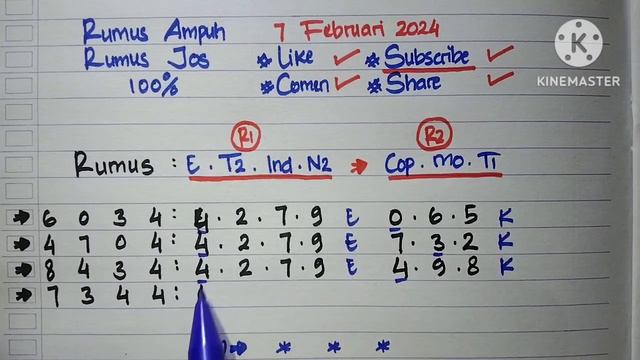 Rumus Ampuh 7 Februari 2024
Rumus Jos * Like ✓ * Subscribe ✓
100% * Comen ✓ * Share ✓
KINEMASTER
R1 R2
Rumus : E . T2 . Ind . N2 → Cop . Mo . T1
→ 6 0 3 4 : 4 . 2 . 7 . 9 E 0 . 6 . 5 K
→ 4 7 0 4 : 4 . 2 . 7 . 9 E 7 . 3 . 2 K
→ 8 4 3 4 : 4 . 2 . 7 . 9 E 4 . 9 . 8 K
→ 7 3 4 4 :
→ * * *